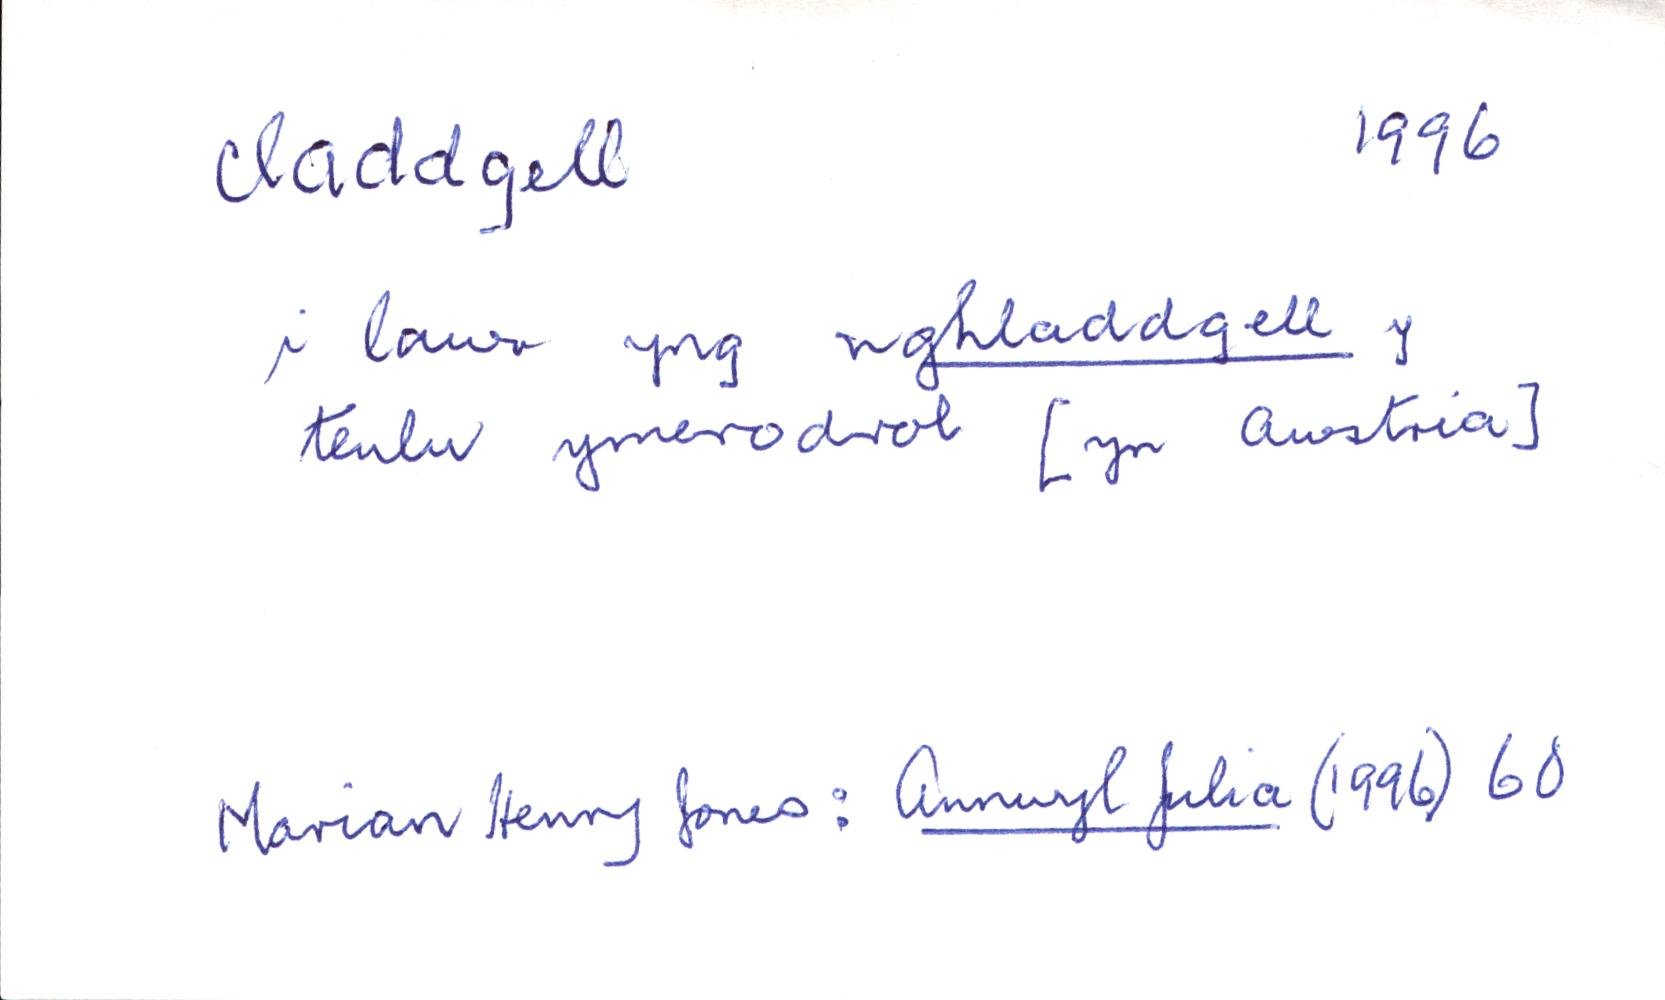 claddgell 1996
i lawr yng nghladdgell y
teulu ymerodrol [yn Awstria]
Marian Henry Jones: Annwyl Julia (1996) 60